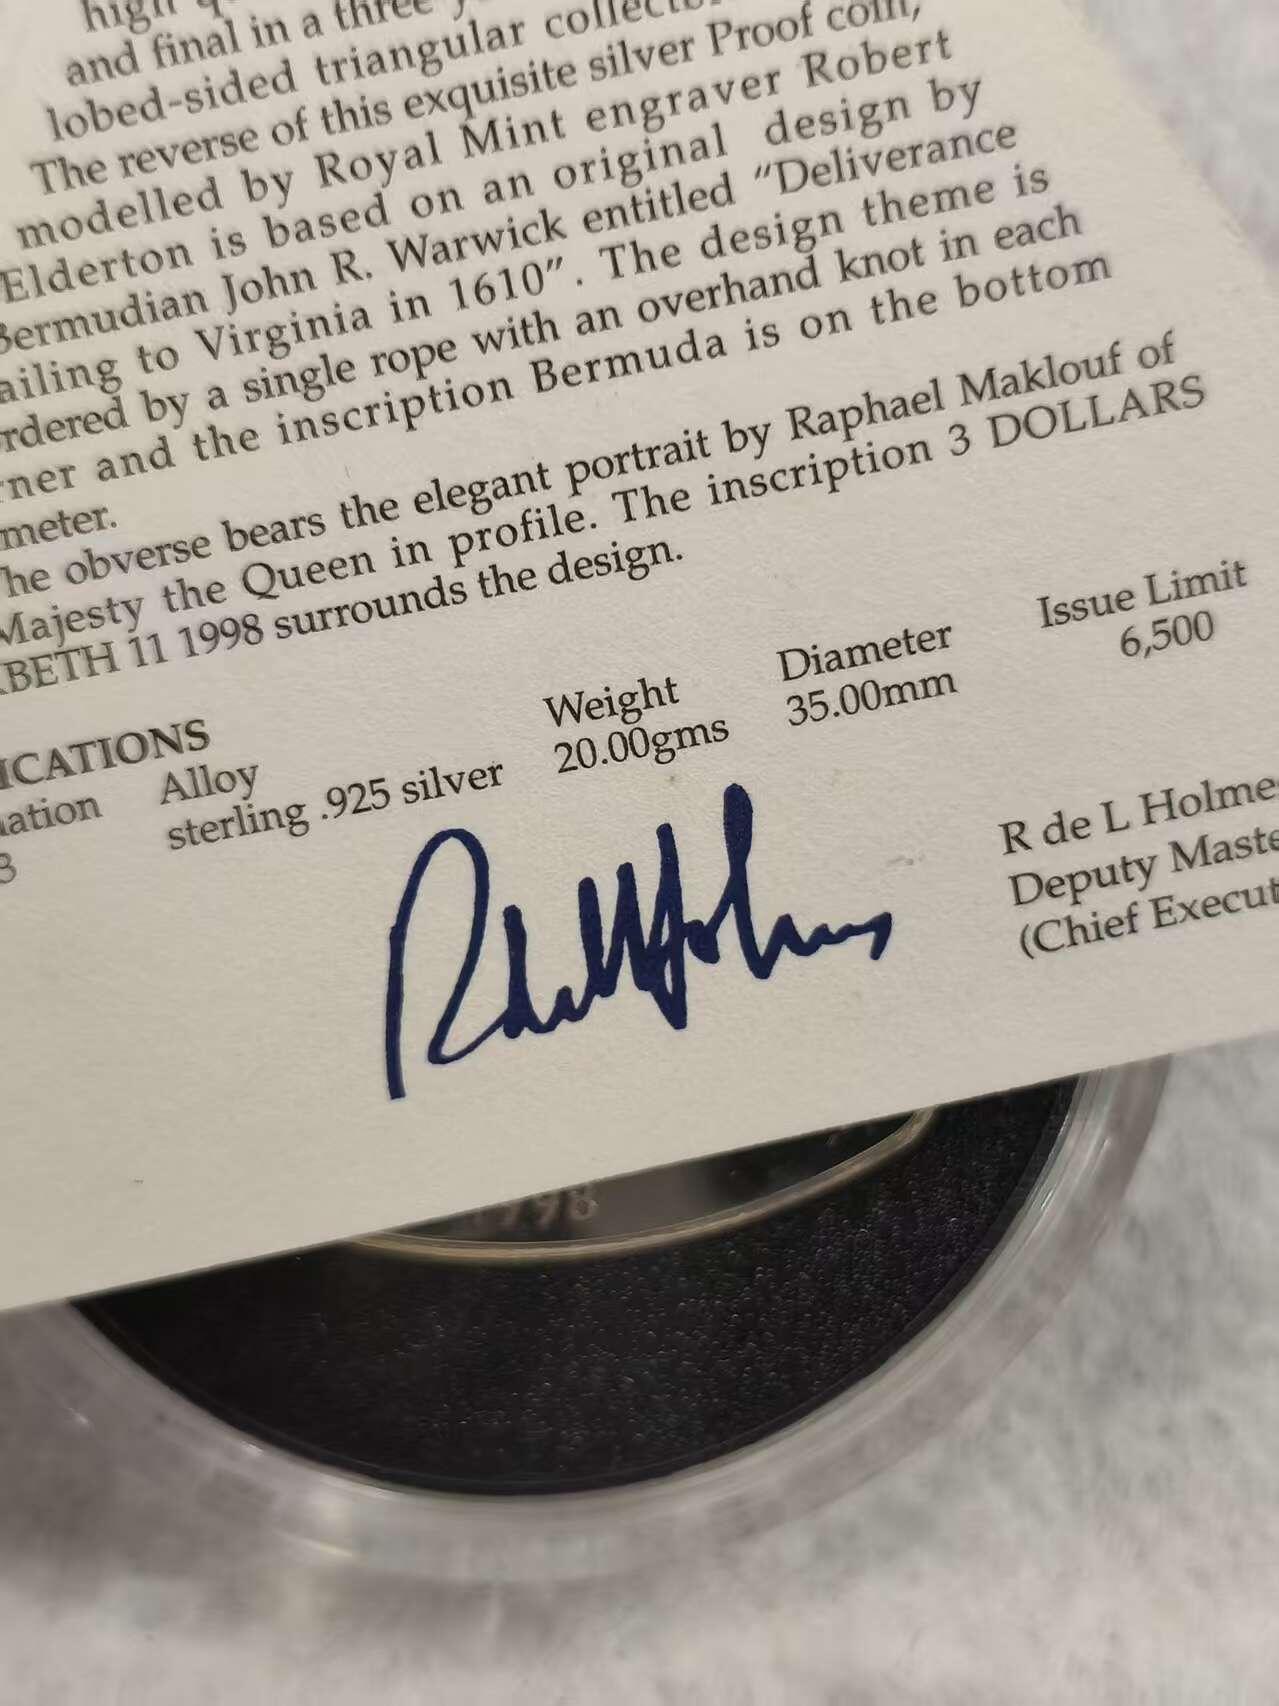 high
and final in a three
lobed-sided triangular
The reverse of this exquisite silver Proof coin,
modelled by Royal Mint engraver Robert
Elderton is based on an original design by
Bermudian John R. Warwick entitled "Deliverance
ailing to Virginia in 1610". The design theme is
rdered by a single rope with an overhand knot in each
rner and the inscription Bermuda is on the bottom
meter.
he obverse bears the elegant portrait by Raphael Maklouf of
Majesty the Queen in profile. The inscription 3 DOLLARS
BETH 11 1998 surrounds the design.
ICATIONS
ation Alloy Weight Diameter Issue Limit
3 sterling .925 silver 20.00gms 35.00mm 6,500
R de L Holmes
Deputy Maste
(Chief Execut
1998